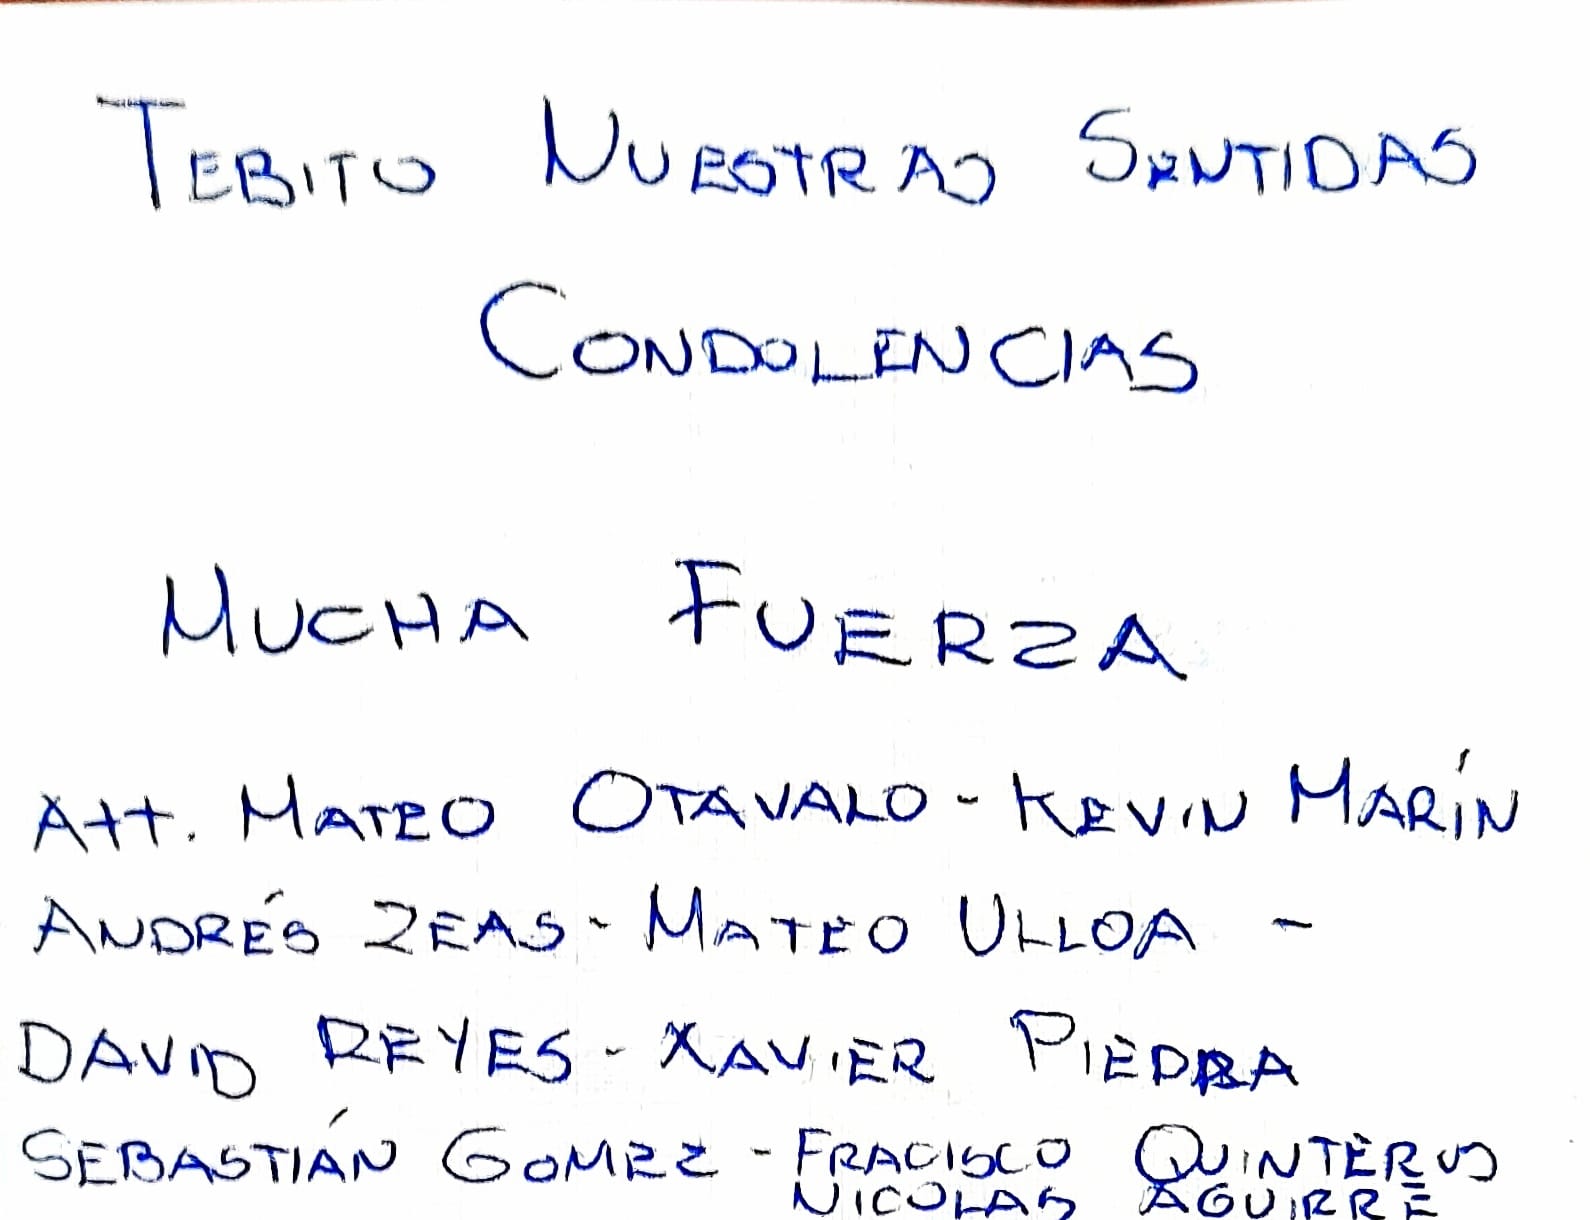 TEBITO NUESTRAS SENTIDAS
CONDOLENCIAS
MUCHA FUERZA
Att. MATEO OTAVALO - KEVIN MARÍN
ANDRÉS ZEAS - MATEO ULLOA -
DAVID REYES - XAVIER PIEDRA
SEBASTIÁN GOMEZ - FRACISCO QUINTEROS
NICOLAS AGUIRRE